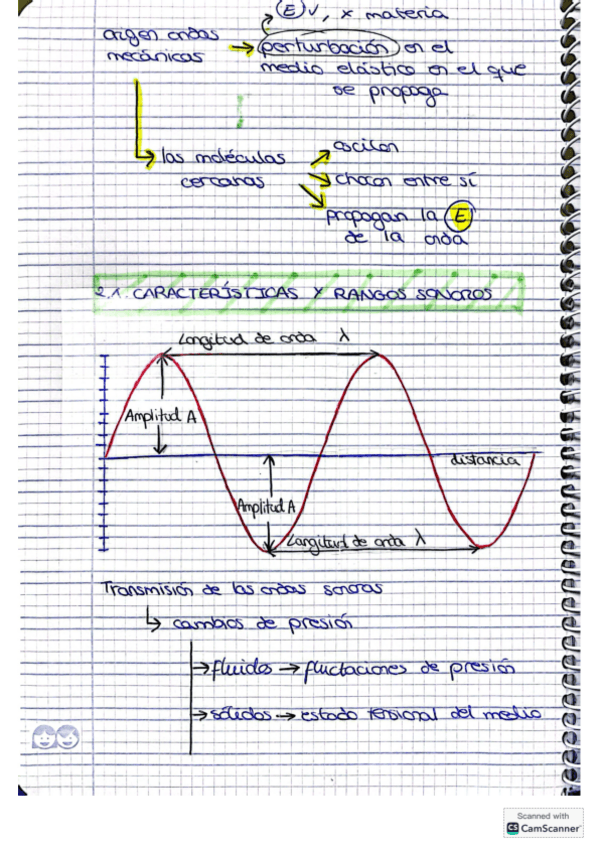 (E) ✓, × materia
origen ondas → perturbación en el
mecánicas medio elástico en el que
se propaga
las moléculas → oscilan
cercanas → chocan entre sí
→ propagan la (E)
de la onda
2.1. CARACTERÍSTICAS Y RANGOS SONOROS
Longitud de onda λ
Amplitud A
distancia
Amplitud A
Longitud de onda λ
Transmisión de las ondas sonoras
↳ cambios de presión
→ fluidos → fluctaciones de presión
→ sólidos → estado tensional del medio
Scanned with
CS CamScanner